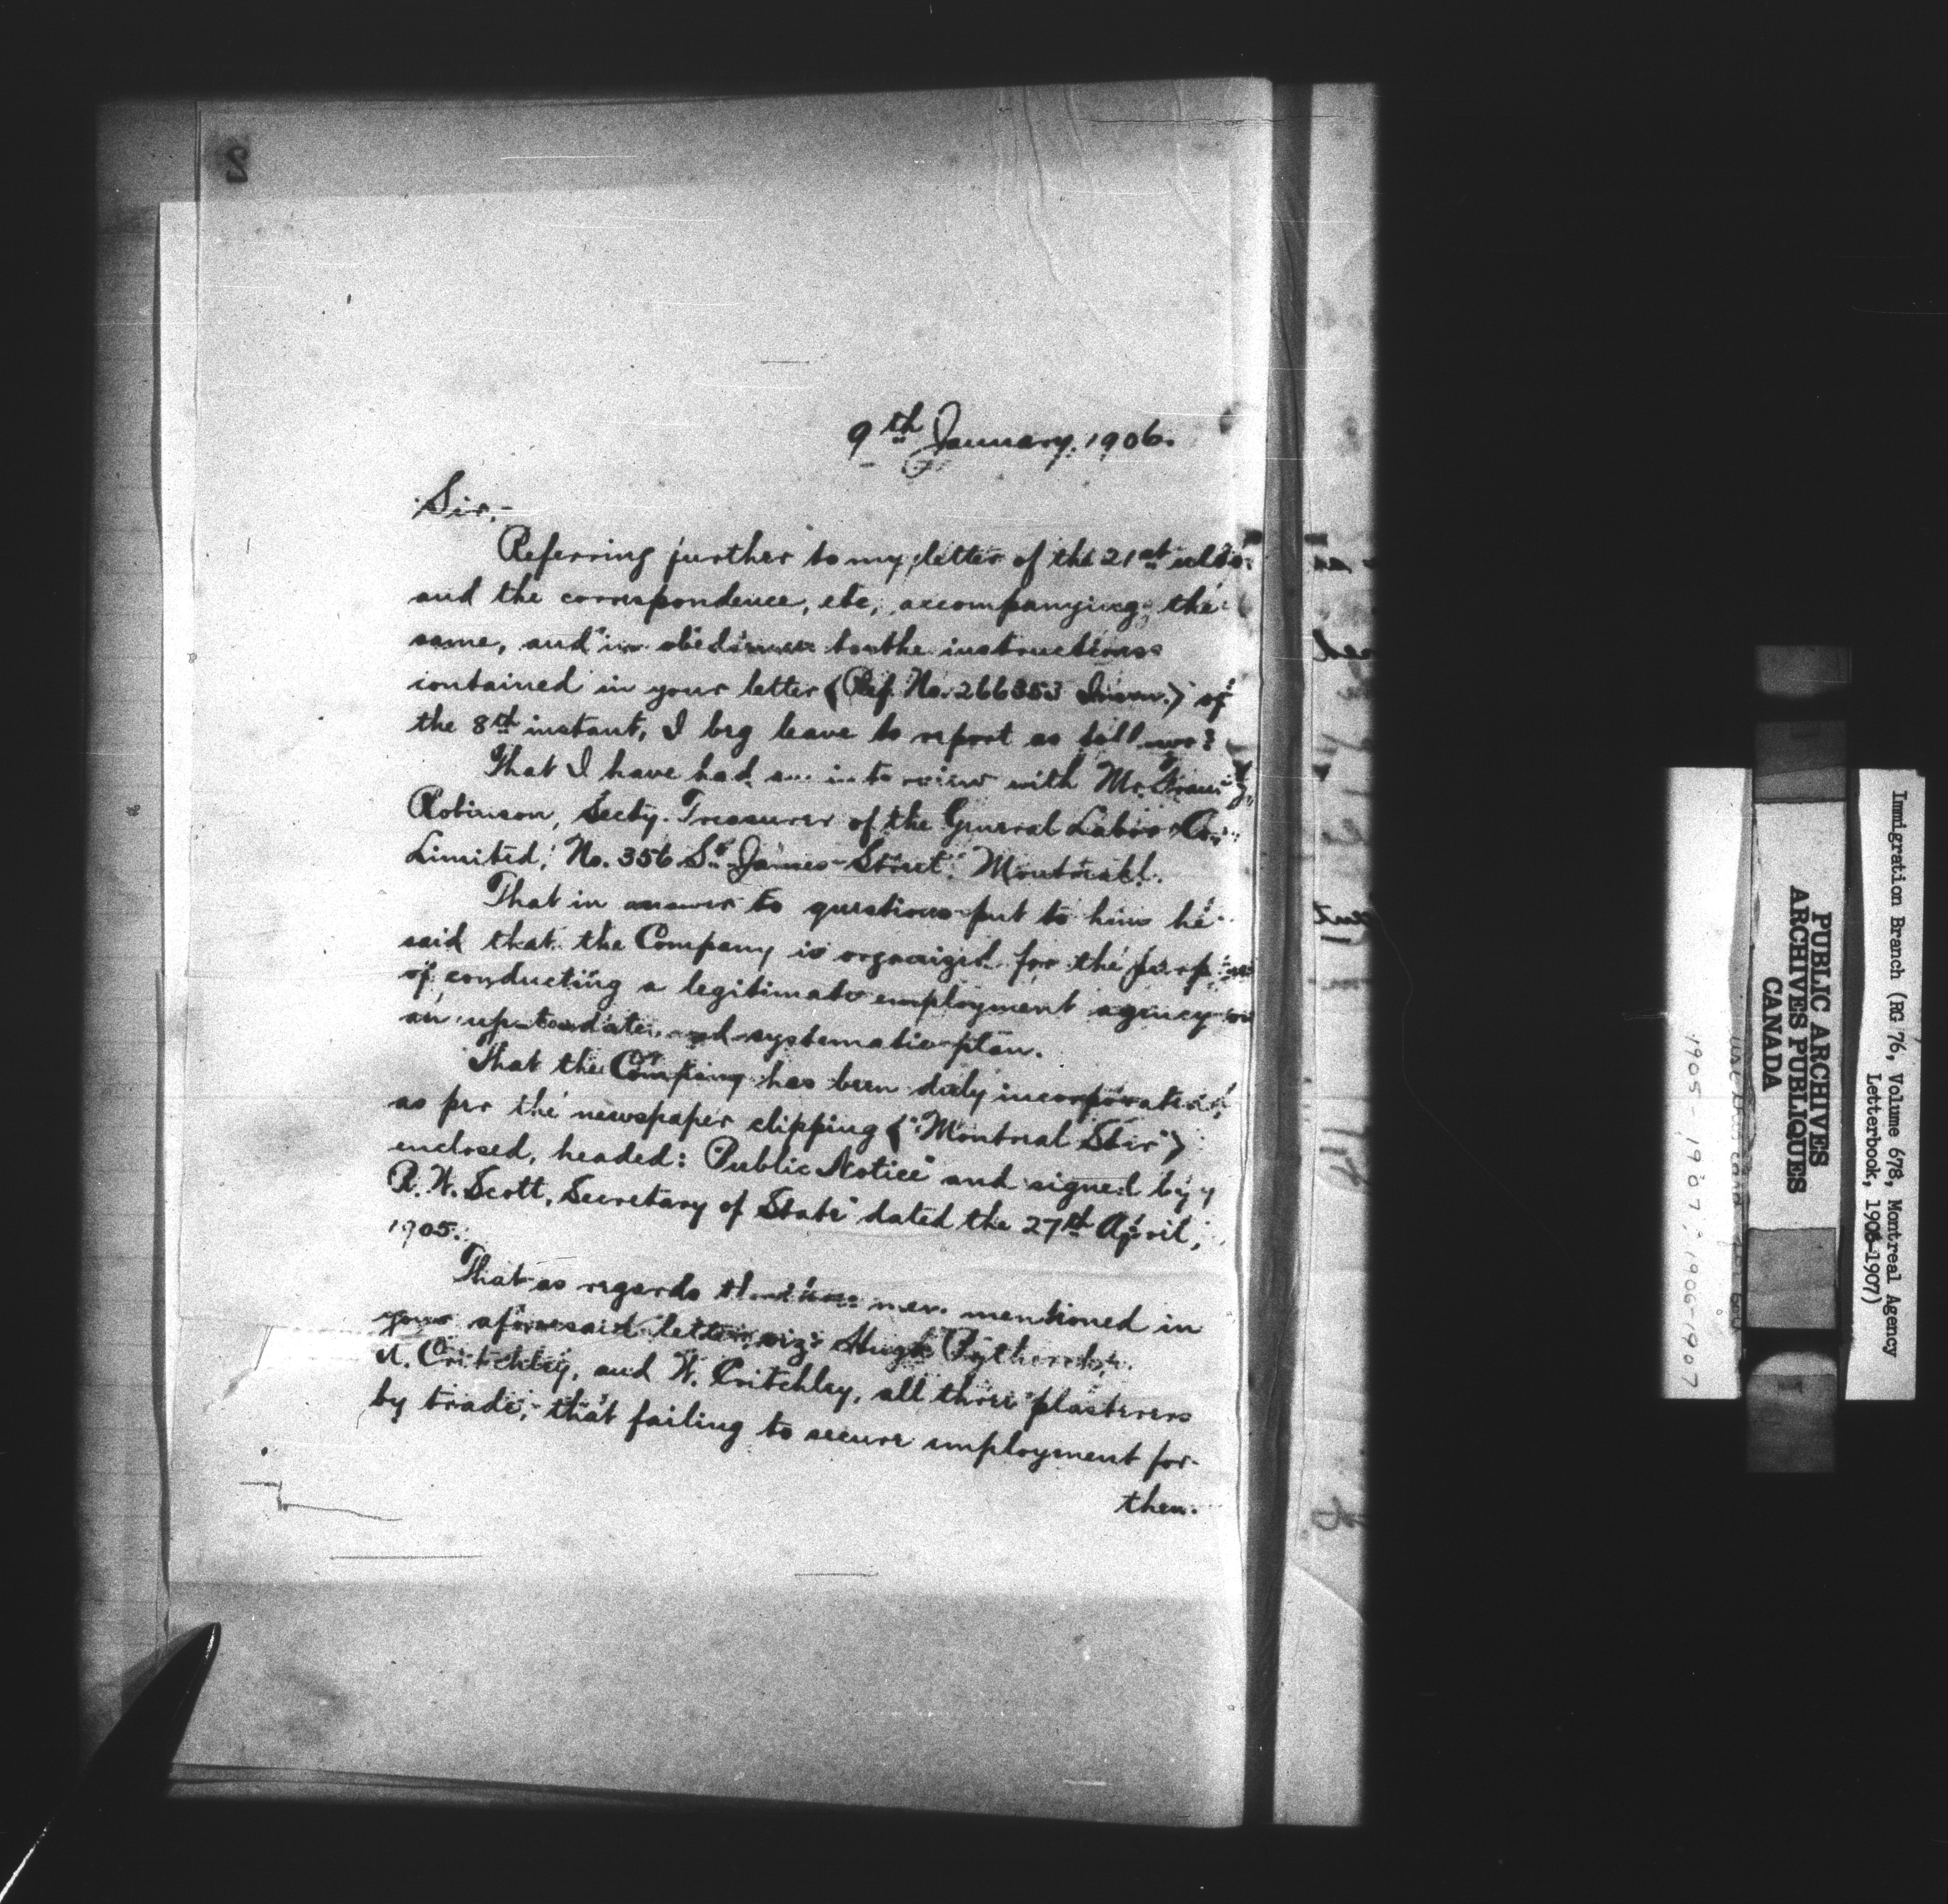 9th January, 1906.
Sir,-
Referring further to my letter of the 21st ulto.
and the correspondence, etc, accompanying the
same, and in obedience to the instructions
contained in your letter (Ref. No. 266353 Immn.) of
the 8th instant, I beg leave to report as follows:
That I have had an interview with Mr.
Robinson, Secty. Treasurer of the General Labor Co.,
Limited, No. 356 St. James Street, Montreal.
That in answer to questions put to him he
said that the Company is organized for the purpose
of conducting a legitimate employment agency on
an up-to-date and systematic plan.
That the Company has been duly incorporated
as per the newspaper clipping ("Montreal Star")
enclosed, headed: "Public Notice" and signed by
R. W. Scott, Secretary of State" dated the 27th April,
1905.
That as regards the three men mentioned in
your aforesaid letter, viz: Hugh
A. Critchley, and W. Critchley, all three plasterers
by trade, that failing to secure employment for
them
PUBLIC ARCHIVES
ARCHIVES PUBLIQUES
CANADA
Immigration Branch (RG 76, Volume 678, Montreal Agency
Letterbook, 1905-1907)
1905-1907, 1906-1907